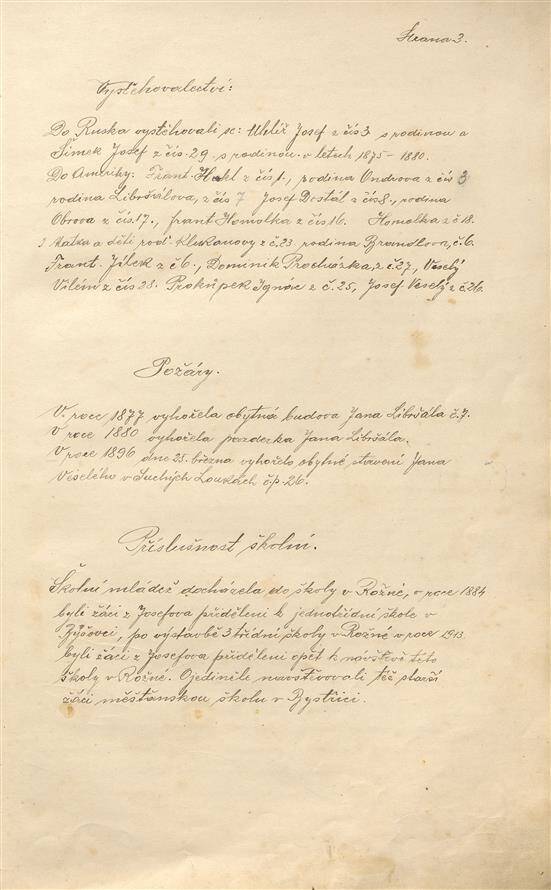 Strana 3.
Vystěhovalectví:
Do Ruska vystěhovali se: Uhlíř Josef z čís 3 s rodinou a
Šimek Josef z čís. 29 s rodinou v letech 1875 - 1880.
Do Ameriky: Frant. z čís 1., rodina Ondrova z čís 3
rodina Libršálova, z čís 7 Josef Dostál z čís 8., rodina
Obrova z čís. 17., frant Homolka z čís 16. Homolka z č 18.
matka a děti rod. Klukanovy z č. 23 rodina Brandlova, č. 6.
Frant. Jílek z č 6., Dominik Procházka, z č. 27, Veselý
Vilém z čís 28. Prokůpek Ignác z č. 25, Josef Veselý z č. 26.
Požáry.
V. roce 1877 vyhořela obytná budova Jana Libršála č. 7.
V roce 1880 vyhořela pazderka Jana Libršála.
V roce 1896 dne 25. března vyhořelo obytné stavení Jana
Veselého v Suchých Loukách č.p. 26.
Příslušnost školní.
Školní mládež docházela do školy v Rožné, v roce 1884
byli žáci z Josefova přiděleni k jednotřídní škole v
Býšovci, po výstavbě 3 třídní školy v Rožné v roce 1913
byli žáci z Josefova přiděleni opět k návštěvě této
školy v Rožné. Ojediněle navštěvovali též starší
žáci měšťanskou školu v Bystřici.